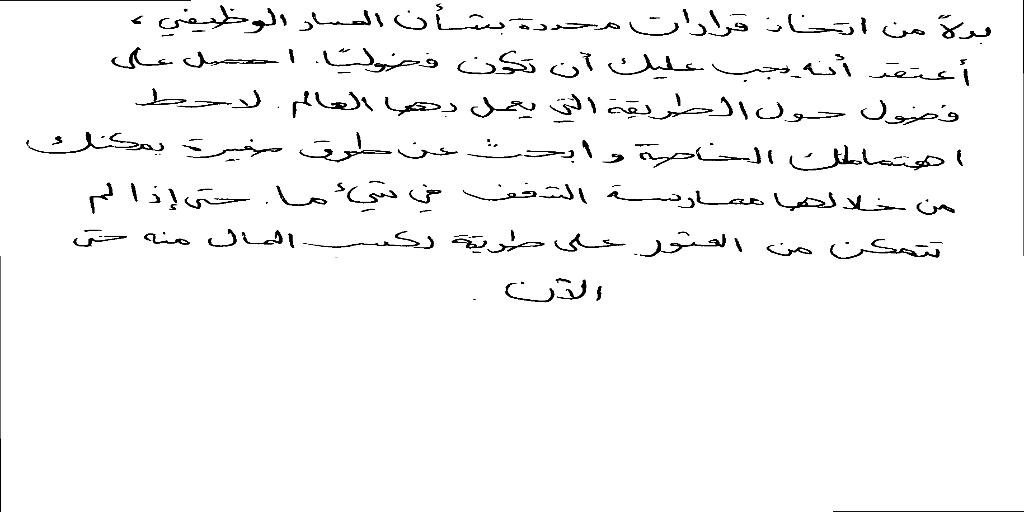 بدلاً من اتخاذ قرارات محددة بشأن المسار الوظيفي ،
أعتقد أنه يجب عليك أن تكون فضوليًا. احصل على
فضول حول الطريقة التي يعمل بها العالم. لاحظ
اهتماماتك الخاصة وابحث عن طرق صغيرة يمكنك
من خلالها ممارسة الشغف في شيء ما. حتى إذا لم
تتمكن من العثور على طريقة لكسب المال منه حتى
الآن .